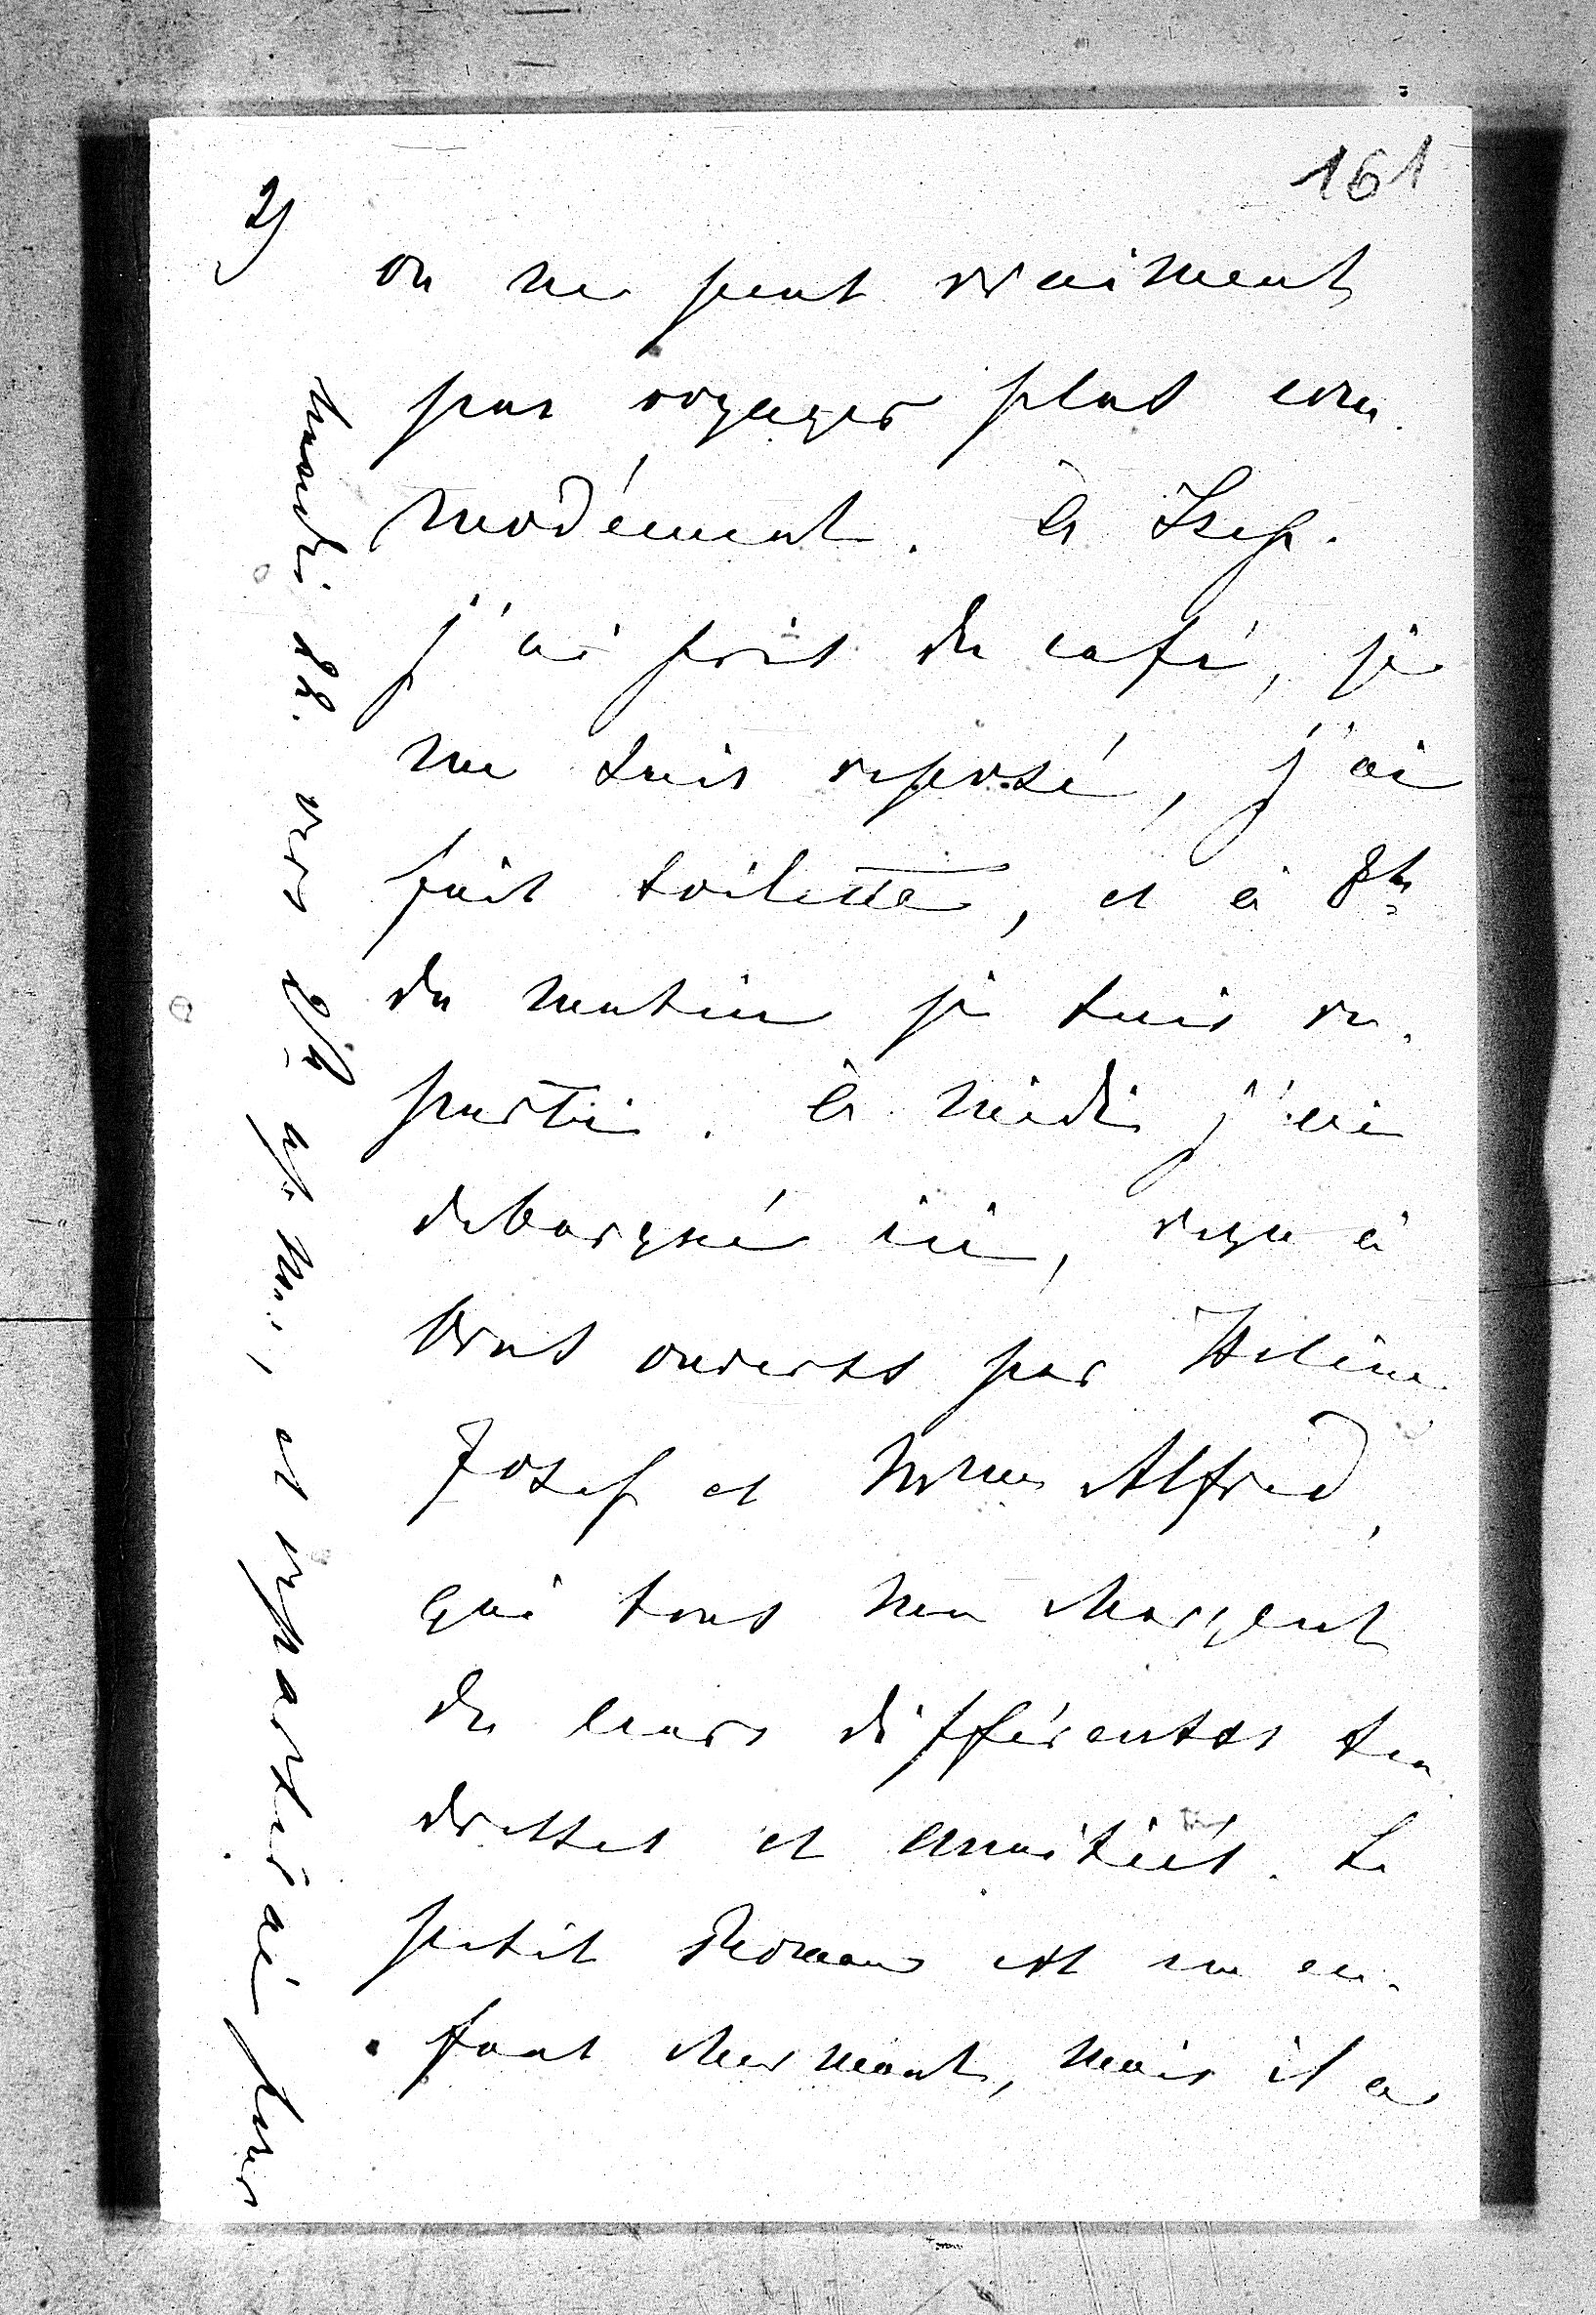 161
2)
on ne peut vraiment
pas voyager plus com-
modément. à Izep.
j'ai pris du café, je
me suis reposé, j'ai
fait toilette, et à 8h
du matin je suis re-
parti. à midi j'ai
debarqué ici, reçu à
bras ouverts par Hélène
Josef et Mme Alfred,
qui tous me chargent
de leurs différentes ten
dresses et amitiés. Le
petit Roman est un en-
fant charmant, mais il a
mardi 22. vers 2h ap. m., et repartirai pour